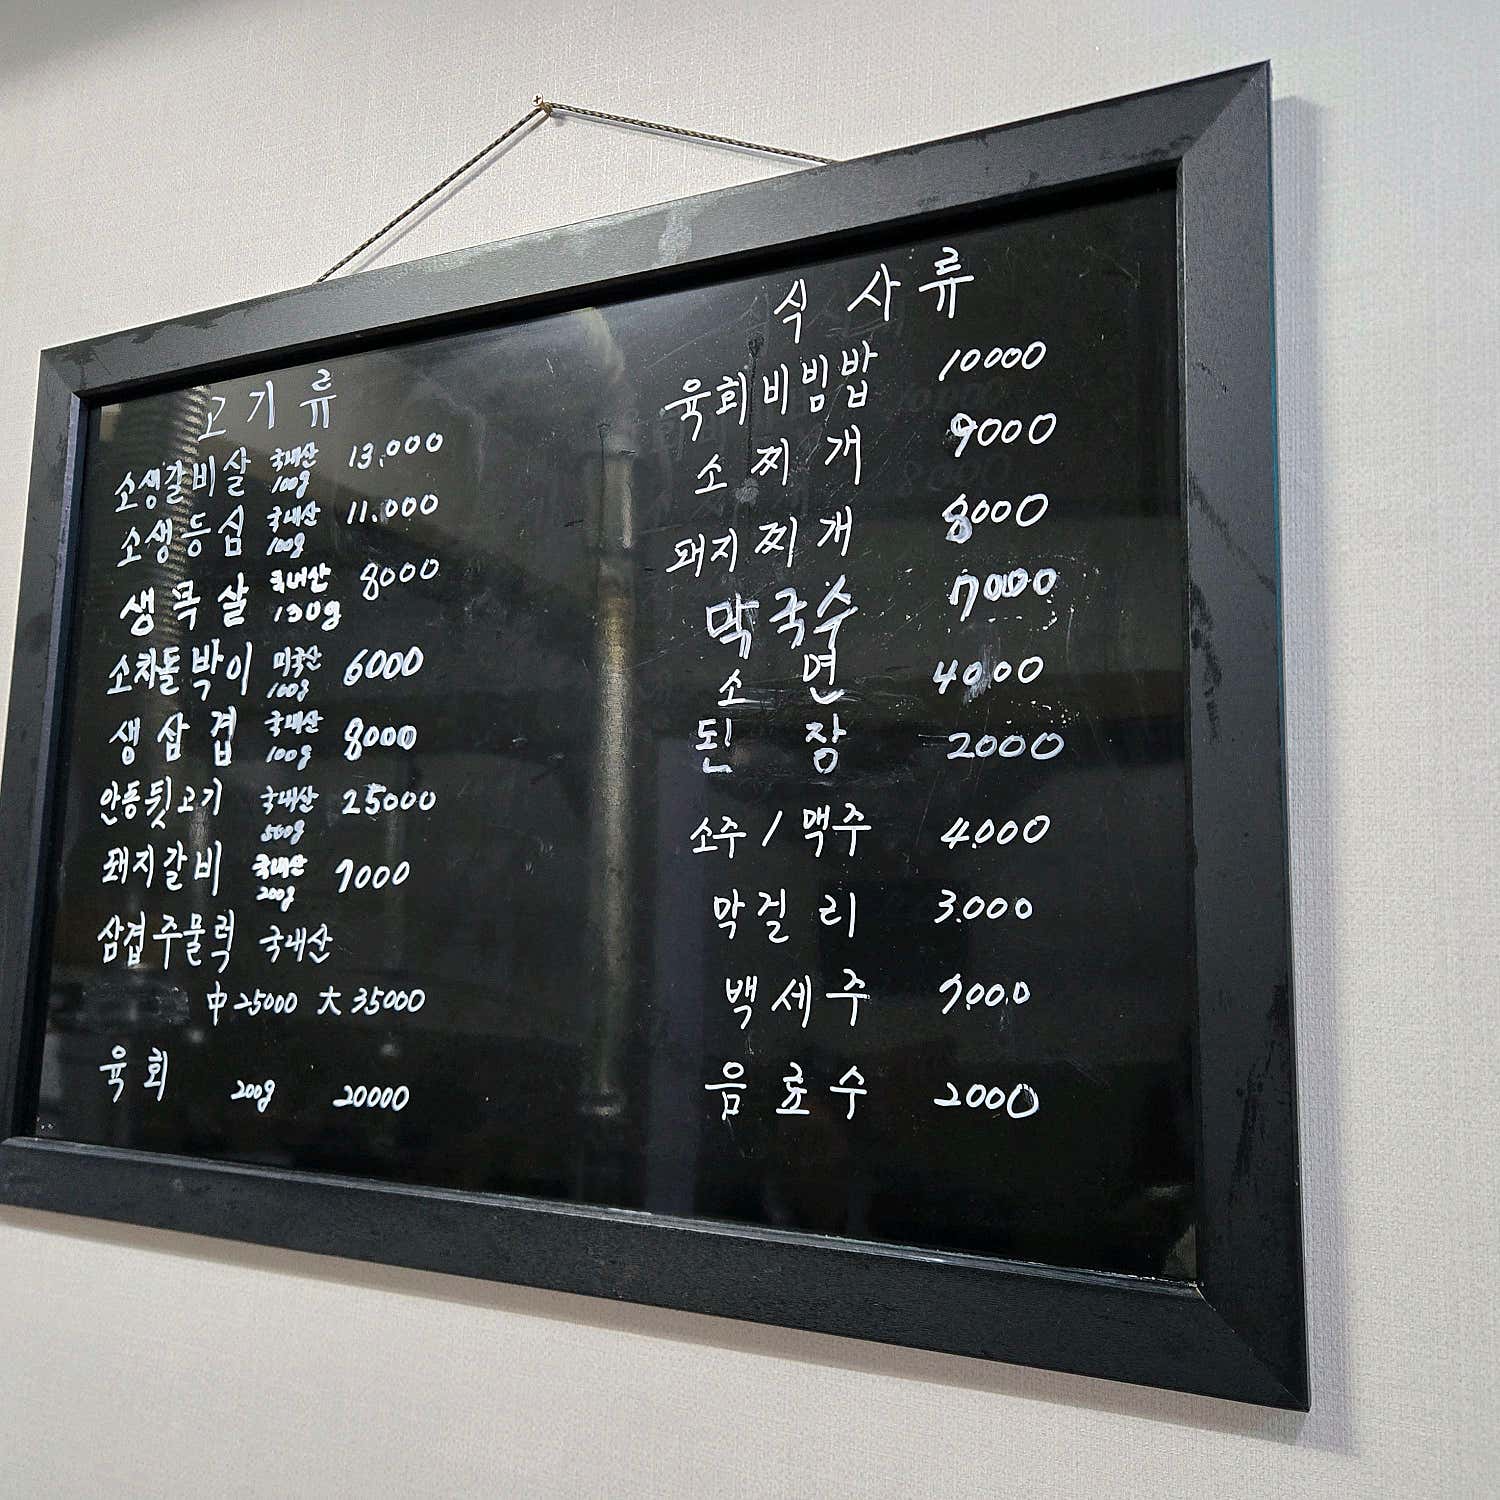 고기류
소생갈비살 국내산 100g 13,000
소생등심 국내산 100g 11,000
생목살 국내산 130g 8000
소차돌박이 미국산 100g 6000
생삼겹 국내산 100g 8000
안동뒷고기 국내산 500g 25000
돼지갈비 국내산 200g 7000
삼겹주물럭 국내산
中 25000 大 35000
육회 200g 20000
식사류
육회비빔밥 10000
소찌개 9000
돼지찌개 8000
막국수 7000
소면 4000
된장 2000
소주 / 맥주 4.000
막걸리 3.000
백세주 7.000
음료수 2000